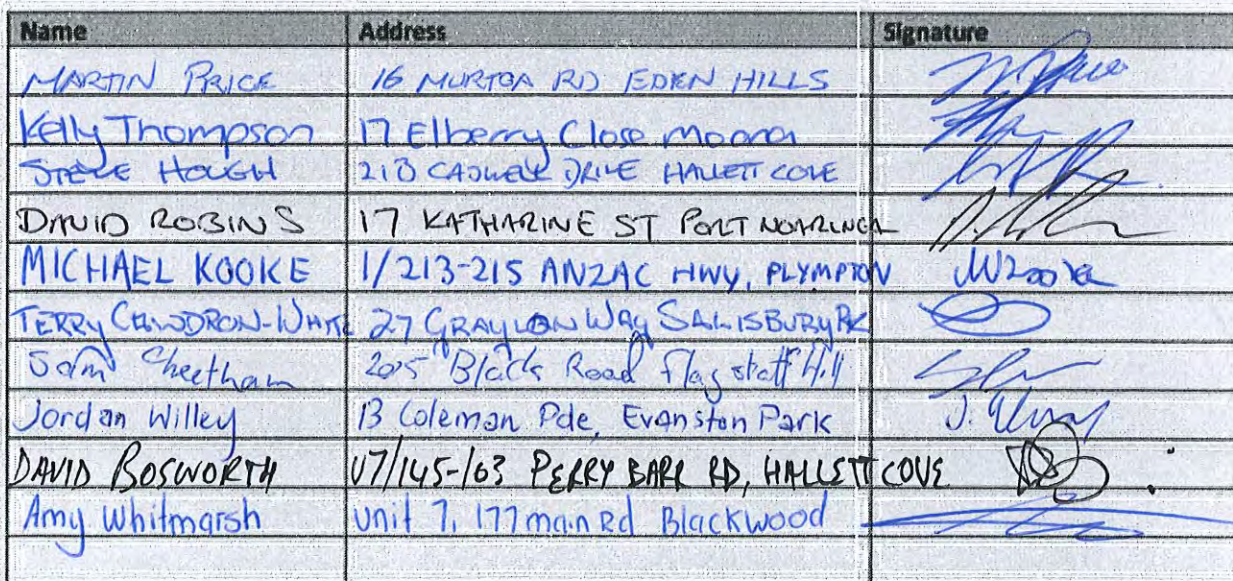 Name Address Signature
MARTIN PRICE 16 MURTOA RD EDEN HILLS
Kelly Thompson 17 Elberry Close Moana
STEVE HOUGH 213 DRIVE HALLETT COVE
DAVID ROBINS 17 KATHARINE ST PORT NOARLUNGA
MICHAEL KOOKE 1/213-215 ANZAC HWY, PLYMPTON
TERRY CAWDRON-WHITE 27 GRAYLON WAY SALISBURY PK
Sam Cheetham Black Road Flagstaff Hill
Jordan Willey 13 Coleman Pde, Evanston Park J.
DAVID BOSWORTH U7/145-163 PERRY BARR RD, HALLETT COVE
Amy Whitmarsh Unit 7, 177 main Rd Blackwood